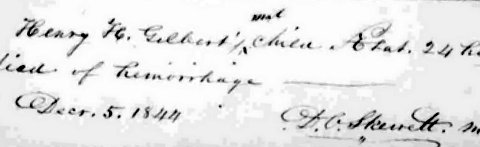 Henry H. Gilbert's child Ætat. 24 ho
died of hemorrhage
Decr. 5. 1844
D. C. Skerrett. M